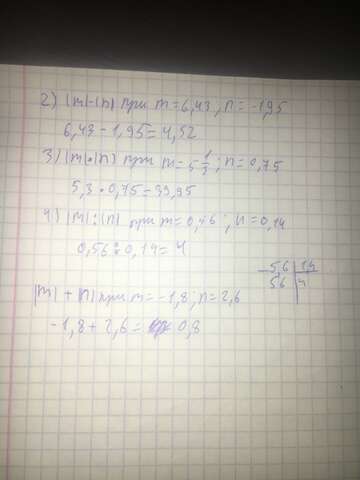 2) |m|-|n| при m=6,43; n=-1,95
6,43-1,95=4,52
3) |m|•|n| при m=5 1/3; n=0,75
5,3•0,75=39,95
4) |m|:|n| при m=0,56; n=0,14
0,56:0,14=4
-56|14
56|4
|m|+|n| при m=-1,8; n=2,6
-1,8+2,6= 0,8